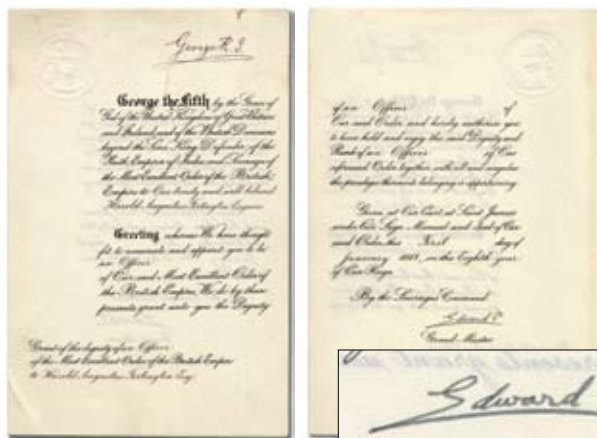 George R. I.
George the Fifth by the Grace of
God of the United Kingdom of Great Britain
and Ireland and of the British Dominions
beyond the Seas King Defender of the
Faith Emperor of India and Sovereign of
the Most Excellent Order of the British
Empire to Our trusty and well beloved
Harold Augustus Esquire
Greeting whereas We have thought
fit to nominate and appoint you to be
an Officer
of Our said Most Excellent Order of
the British Empire, We do by these
presents grant unto you the Dignity
Grant of the dignity of an Officer
of the Most Excellent Order of the British Empire
to Harold Augustus Esq:
of an Officer of
Our said Order and hereby authorise you
to have hold and enjoy the said Dignity and
Rank of an Officer of Our
aforesaid Order together with all and singular
the privileges thereunto belonging or appertaining.
Given at Our Court at Saint James's
under Our Sign Manual and Seal of Our
said Order this First day of
January 1918, in the Eighth year
of Our Reign.
By the Sovereign's Command.
Edward P.
Grand Master
Edward